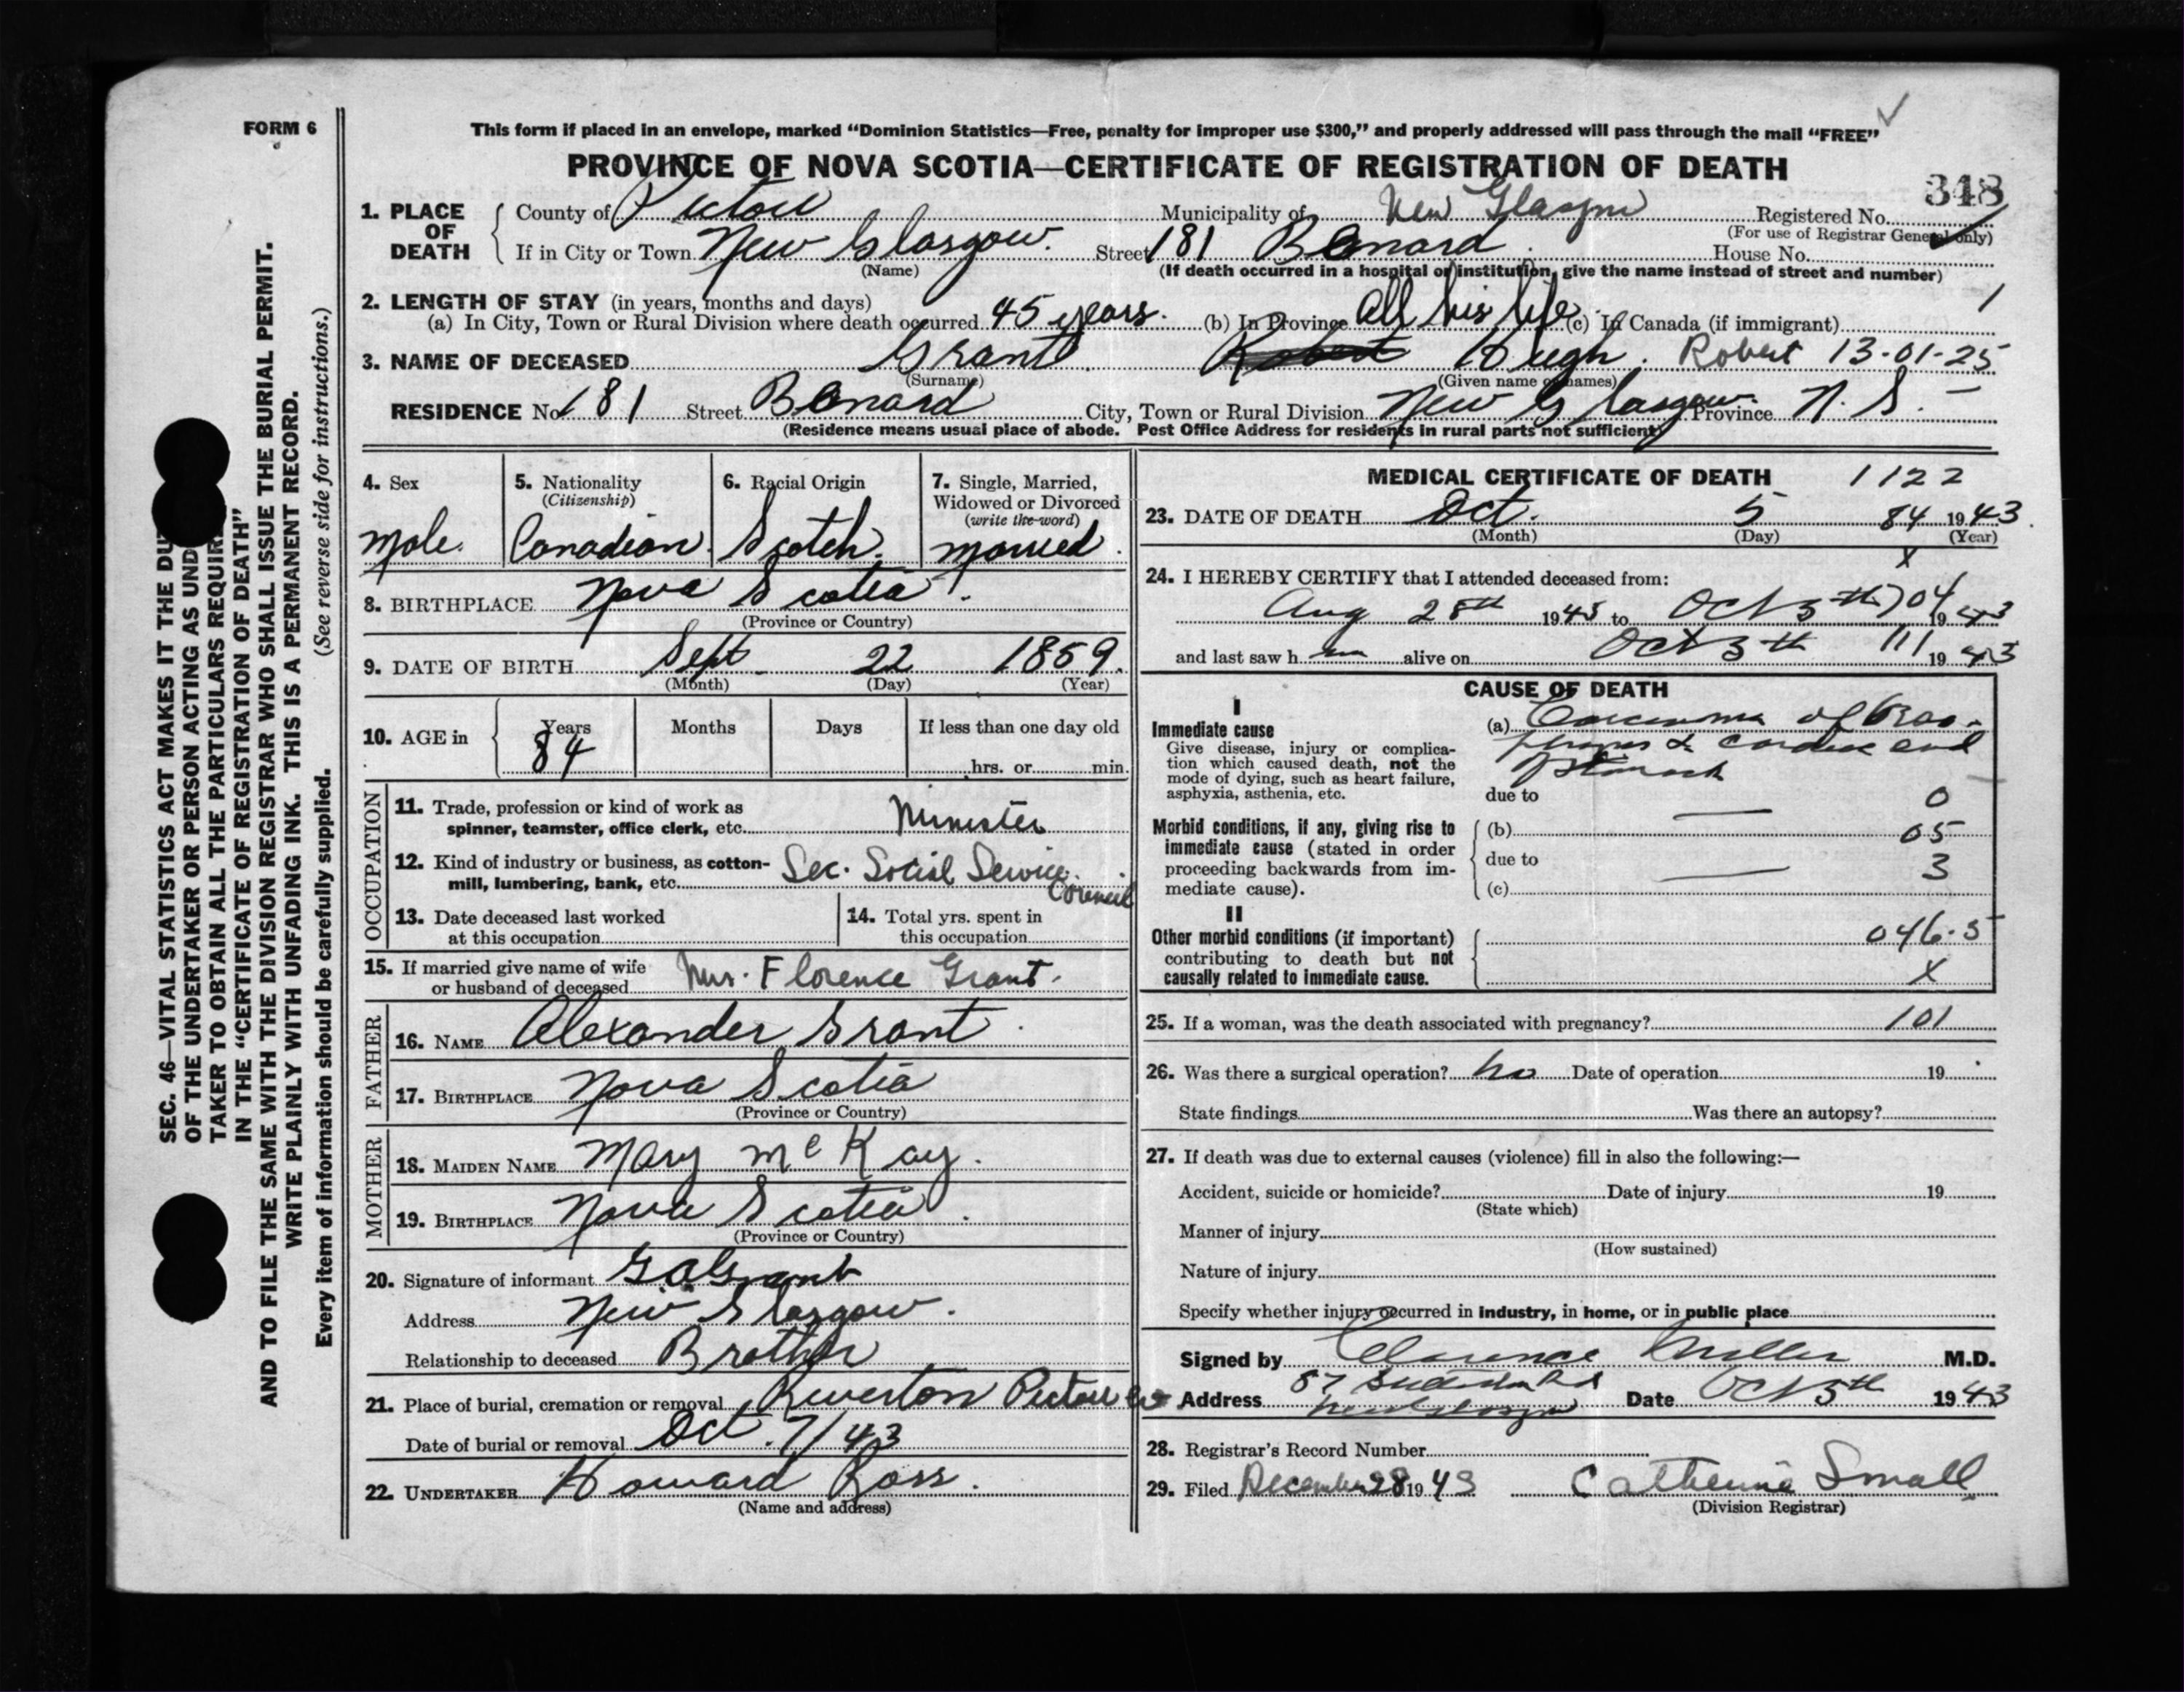 FORM 6
This form if placed in an envelope, marked “Dominion Statistics—Free, penalty for improper use $300,” and properly addressed will pass through the mail “FREE”
PROVINCE OF NOVA SCOTIA—CERTIFICATE OF REGISTRATION OF DEATH
348
1. PLACE OF DEATH
County of Pictou Municipality of New Glasgow Registered No.
(For use of Registrar General only)
If in City or Town New Glasgow. Street 181 Bonard. House No.
(Name) (If death occurred in a hospital or institution, give the name instead of street and number)
2. LENGTH OF STAY (in years, months and days) 1
(a) In City, Town or Rural Division where death occurred 45 years. (b) In Province All his life (c) In Canada (if immigrant)
3. NAME OF DECEASED Grant. Robert Hugh. Robert 13-01-25
(Surname) (Given name or names)
RESIDENCE No. 181 Street Bonard City, Town or Rural Division New Glasgow. Province N. S. —
(Residence means usual place of abode. Post Office Address for residents in rural parts not sufficient)
4. Sex
male.
5. Nationality
(Citizenship)
Canadian.
6. Racial Origin
Scotch.
7. Single, Married,
Widowed or Divorced
(write the word)
married.
8. BIRTHPLACE Nova Scotia.
(Province or Country)
9. DATE OF BIRTH Sept 22 1859.
(Month) (Day) (Year)
10. AGE in Years Months Days If less than one day old
84 hrs. or min.
OCCUPATION
11. Trade, profession or kind of work as
spinner, teamster, office clerk, etc. Minister
12. Kind of industry or business, as cotton-
mill, lumbering, bank, etc. Sec. Social Service
Council
13. Date deceased last worked
at this occupation
14. Total yrs. spent in
this occupation
15. If married give name of wife
or husband of deceased Mrs. Florence Grant.
FATHER
16. NAME Alexander Grant.
17. BIRTHPLACE Nova Scotia
(Province or Country)
MOTHER
18. MAIDEN NAME Mary McKay.
19. BIRTHPLACE Nova Scotia.
(Province or Country)
20. Signature of informant G A Grant
Address New Glasgow.
Relationship to deceased Brother
21. Place of burial, cremation or removal Riverton Pictou Co
Date of burial or removal Oct. 7/43
22. UNDERTAKER Howard Ross.
(Name and address)
MEDICAL CERTIFICATE OF DEATH 1122
23. DATE OF DEATH Oct. 5 84 1943.
(Month) (Day) (Year)
X
24. I HEREBY CERTIFY that I attended deceased from:
Aug 28th 1943 to Oct 5th 704 1943
and last saw h im alive on Oct 5th 111 1943
CAUSE OF DEATH
I
Immediate cause
Give disease, injury or complica-
tion which caused death, not the
mode of dying, such as heart failure,
asphyxia, asthenia, etc.
(a) Carcinoma of
cardiac end
Stomach
due to — 0
Morbid conditions, if any, giving rise to
immediate cause (stated in order
proceeding backwards from im-
mediate cause).
(b) 05
due to — 3
(c)
II
Other morbid conditions (if important)
contributing to death but not
causally related to immediate cause.
046.5
X
25. If a woman, was the death associated with pregnancy? 101
26. Was there a surgical operation? no Date of operation 19
State findings Was there an autopsy?
27. If death was due to external causes (violence) fill in also the following:—
Accident, suicide or homicide? Date of injury 19
(State which)
Manner of injury
(How sustained)
Nature of injury
Specify whether injury occurred in industry, in home, or in public place
Signed by Clarence Miller M.D.
Address 57
New Glasgow Date Oct 5th 1943
28. Registrar's Record Number
29. Filed December 28 1943 Catherine Small
(Division Registrar)
SEC. 46—VITAL STATISTICS ACT MAKES IT THE DU
OF THE UNDERTAKER OR PERSON ACTING AS UND
TAKER TO OBTAIN ALL THE PARTICULARS REQUIR
IN THE “CERTIFICATE OF REGISTRATION OF DEATH”
AND TO FILE THE SAME WITH THE DIVISION REGISTRAR WHO SHALL ISSUE THE BURIAL PERMIT.
WRITE PLAINLY WITH UNFADING INK. THIS IS A PERMANENT RECORD.
Every item of information should be carefully supplied. (See reverse side for instructions.)